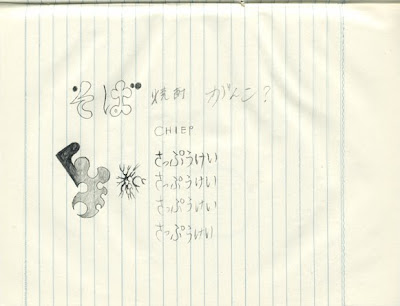 そば 焼酎 がんこ?
CHIEP
さっぷうけい
さっぷうけい
さっぷうけい
さっぷうけい